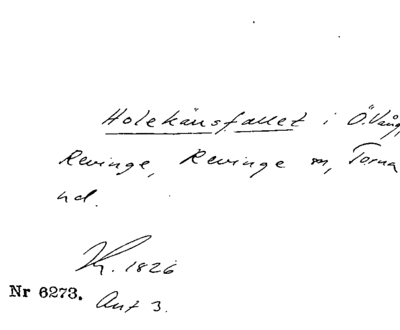 Holekänsfallet i Ö. Vång,
Revinge, Revinge sn, Torna
hd.
Kr. 1826
Nr 6273. Ant 3.